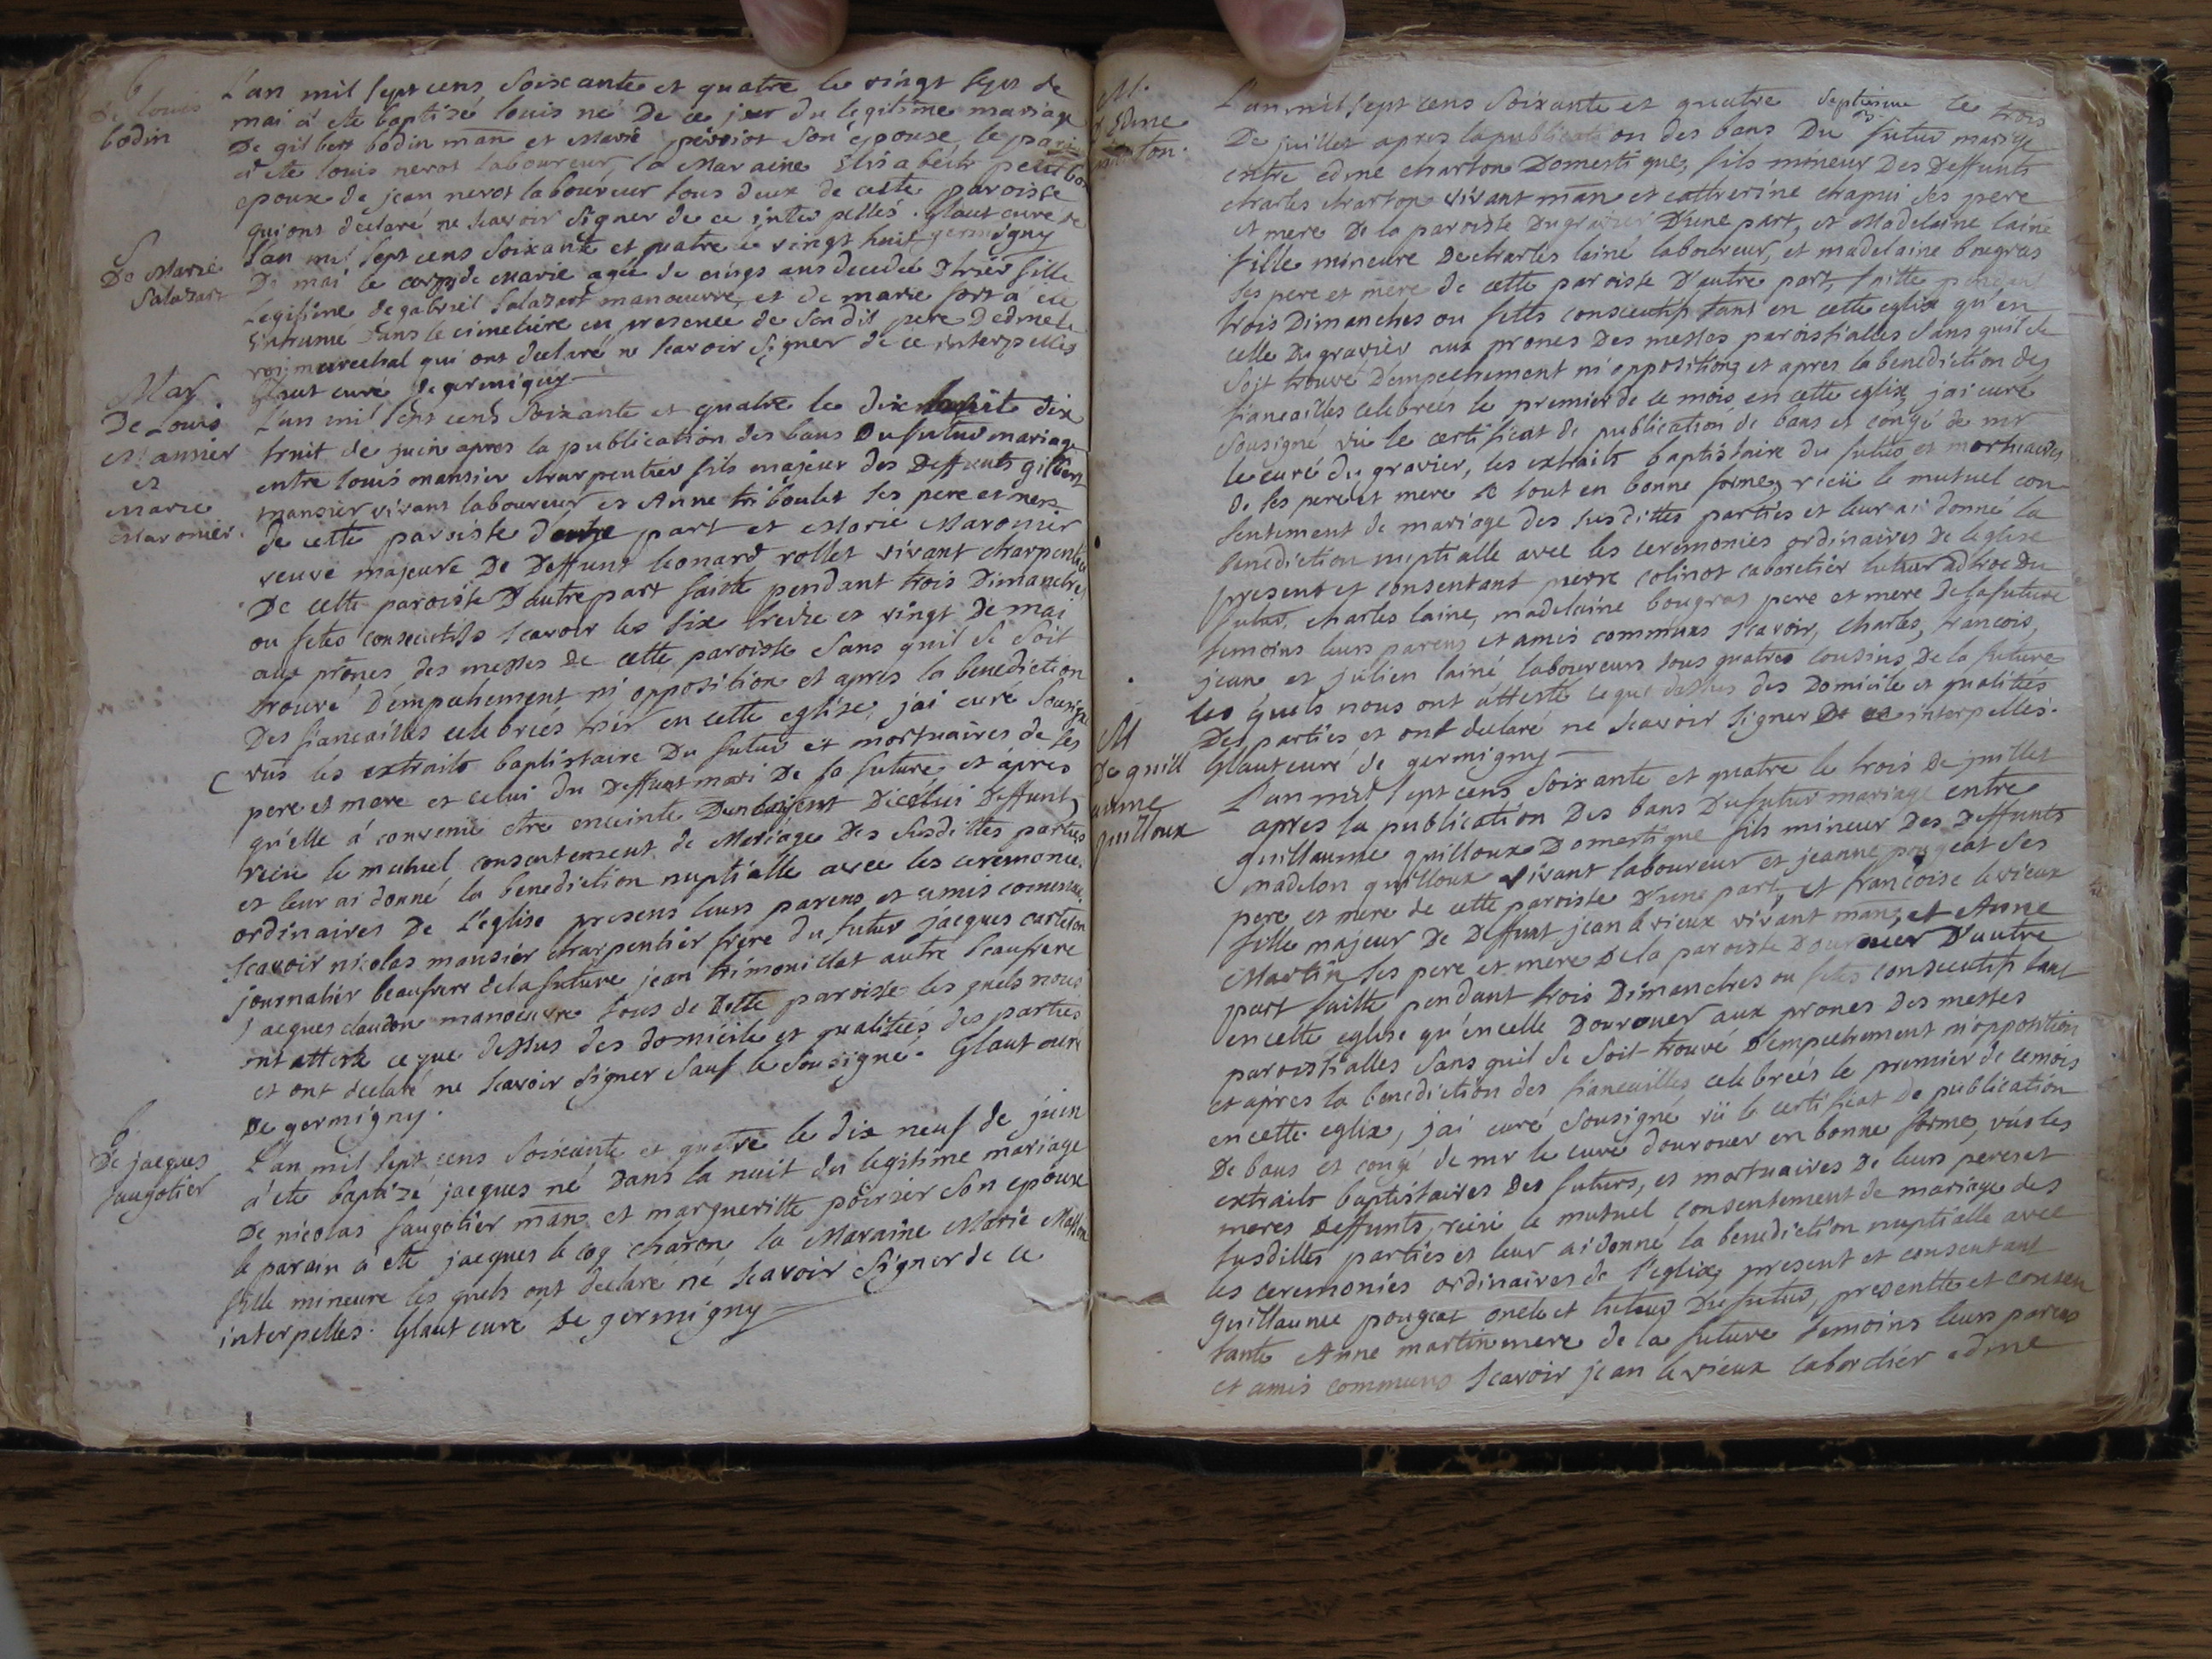 B
De louis
bodin
L'an mil sept cens soixante et quatre le vingt sept de
mai a ete baptisé louis né De ce jour du legitime mariage
De gilbert bodin man et Marie perriot son epouse le parain
a ete louis nerot laboureur la Maraine Elisabeth petit
epouse de jean nerot laboureur tous deux de cette paroisse
qui ont declaré ne scavoir signer de ce interpellés. Glaut curé de
germigny
S
De Marie
Salazart
L'an mil sept cens soixante et quatre le vingt huit
De mai le corps de Marie agée de cinqs ans decedée d'hier fille
Legitime de gabriel Salazart manoeuvre et de marie fort a été
inhumé dans le cimetiére en presence de son dit pere D'edme le
roi marechal qui ont declaré ne scavoir signer de ce interpellés
Glaut curé de germigny
Mar
De Louis
Mansier
et
Marie
Maronier.
L'an mil sept cens soixante et quatre le dix huit dix
huit de juin apres la publication des bans Du futur mariage
entre louis mansier charpentier fils majeur des Deffunts gilbert
mansier vivant laboureur et Anne triboulet ses pere et mere
de cette paroisse d'une part et Marie Maronier
veuve majeure De Deffunt leonard rollet vivant charpentier
De cette paroisse D'autre part faitte pendant trois Dimanches
ou fetes consecutifs scavoir les six treize et vingt De mai
aux prônes des messes De cette paroisse sans quil se soit
trouvé D'empechement ni opposition et apres la benediction
Des fiancailles celebrées hier en cette eglise, jai curé sousigné
vus les extraits baptistaire Du futur et mortuaires de ses
pere et mere et celui du Deffunt mari De la future et apres
qu'elle a convenu etre enceinte D'un enfent D'icelui Deffunt
recu le mutuel consentement de Mariage Des susdittes parties
et leur ai donné la benediction nuptialle avec les ceremonies
ordinaires De L'eglise presens leurs parens et amis comuns
scavoir nicolas mansier charpentier frere du futur jacques carteron
journalier beaufrere de la future jean trimouillat autre beaufrere
jacques claudon manoeuvre tous de cette paroisse les quels nous
ont attesté ce que dessus des domicile et qualitées des parties
et ont declaré ne scavoir signer sauf le sousigné. Glaut curé
De germigny.
B
De jacques
faugotier
L'an mil sept cens soixante et quatre le dix neuf de juin
a ete baptizé jacques né Dans la nuit du legitime mariage
De nicolas faugotier man et margueritte poirier son epouse
le parain a ete jacques le coq charon la Maraine Marie Masson
fille mineure les quels ont declaré né scavoir signer de ce
interpelles. Glaut curé De germigny
M.
d'Edme
charton.
L'an mil sept cens soixante et quatre le trois
De juillet apres la publication des bans Du futur mariage
entre edme charton Domestique, fils mineur Des Deffunts
charles charton vivant man et catherine chapui ses pere
et mere De la paroisse Dugravier D'une part, et Madelaine lainé
fille mineure De charles lainé laboureur, et madelaine bougras
ses pere et mere de cette paroisse D'autre part, faitte pendant
trois Dimanches ou fetes consecutifs tant en cette eglise qu'en
celle Du gravier aux prones Des messes paroissialles sans quil se
soit trouvé D'empechement ni opposition, et apres la benediction des
fiancailles celebrées le premier de ce mois en cette eglise, jai curé
sousigné vu le certificat de publication de bans et congé de mr
le curé du gravier, les extraits baptistaire du futur et mortuaires
de ses pere et mere le tout en bonne forme, recu le mutuel con
sentement de mariage des susdittes parties et leur ai donné la
benediction nuptialle avec les ceremonies ordinaires De leglise
present et consentant pierre colinot cabaretier tuteur adhoc Du
futur, charles laine, madelaine bougras pere et mere De la future
temoins leurs parens et amis communs scavoir, charles, francois,
jean et julien lainé laboureurs tous quatres cousins De la future
les quels nous ont attesté ce que dessus des Domicile et qualitées
Des parties et ont declaré ne scavoir signer De ce interpellés.
Glaut curé de germigny
M
De guill
aume
guilloux
L'an mil sept cens soixante et quatre le trois De juillet
apres la publication Des bans Du futur mariage entre
guillaume guilloux Domestique fils mineur Des Deffunts
madelon guilloux vivant laboureur et jeanne pougeat ses
pere et mere de cette paroisse D'une part, et francoise le vieux
fille majeur De Deffunt jean le vieux vivant man, et Anne
Martin ses pere et mere De la paroisse Dourouer D'autre
part faitte pendant trois Dimanches ou fetes consecutifs tant
en cette eglise qu'en celle Dourouer aux prones Des messes
paroissialles sans quil se soit trouvé D'empechement ni opposition
et après la benediction des fiancailles celebrées le premier de ce mois
en cette eglise, jai curé sousigné vu le certificat De publication
De bans et congé de mr le curé dourouer en bonne forme, vus les
extraits baptistaires Des futurs, et mortuaires De leurs peres et
meres Deffunts, recu le mutuel consentement de mariage des
susdittes parties et leur ai donné la benediction nuptialle avec
les ceremonies ordinaires de l'eglise, present et consentant
guillaume pougeat oncle et tuteur Du futur, presentte et consen
tante Anne martin mere de la future temoins leurs parens
et amis communs scavoir jean le vieux labordier edme